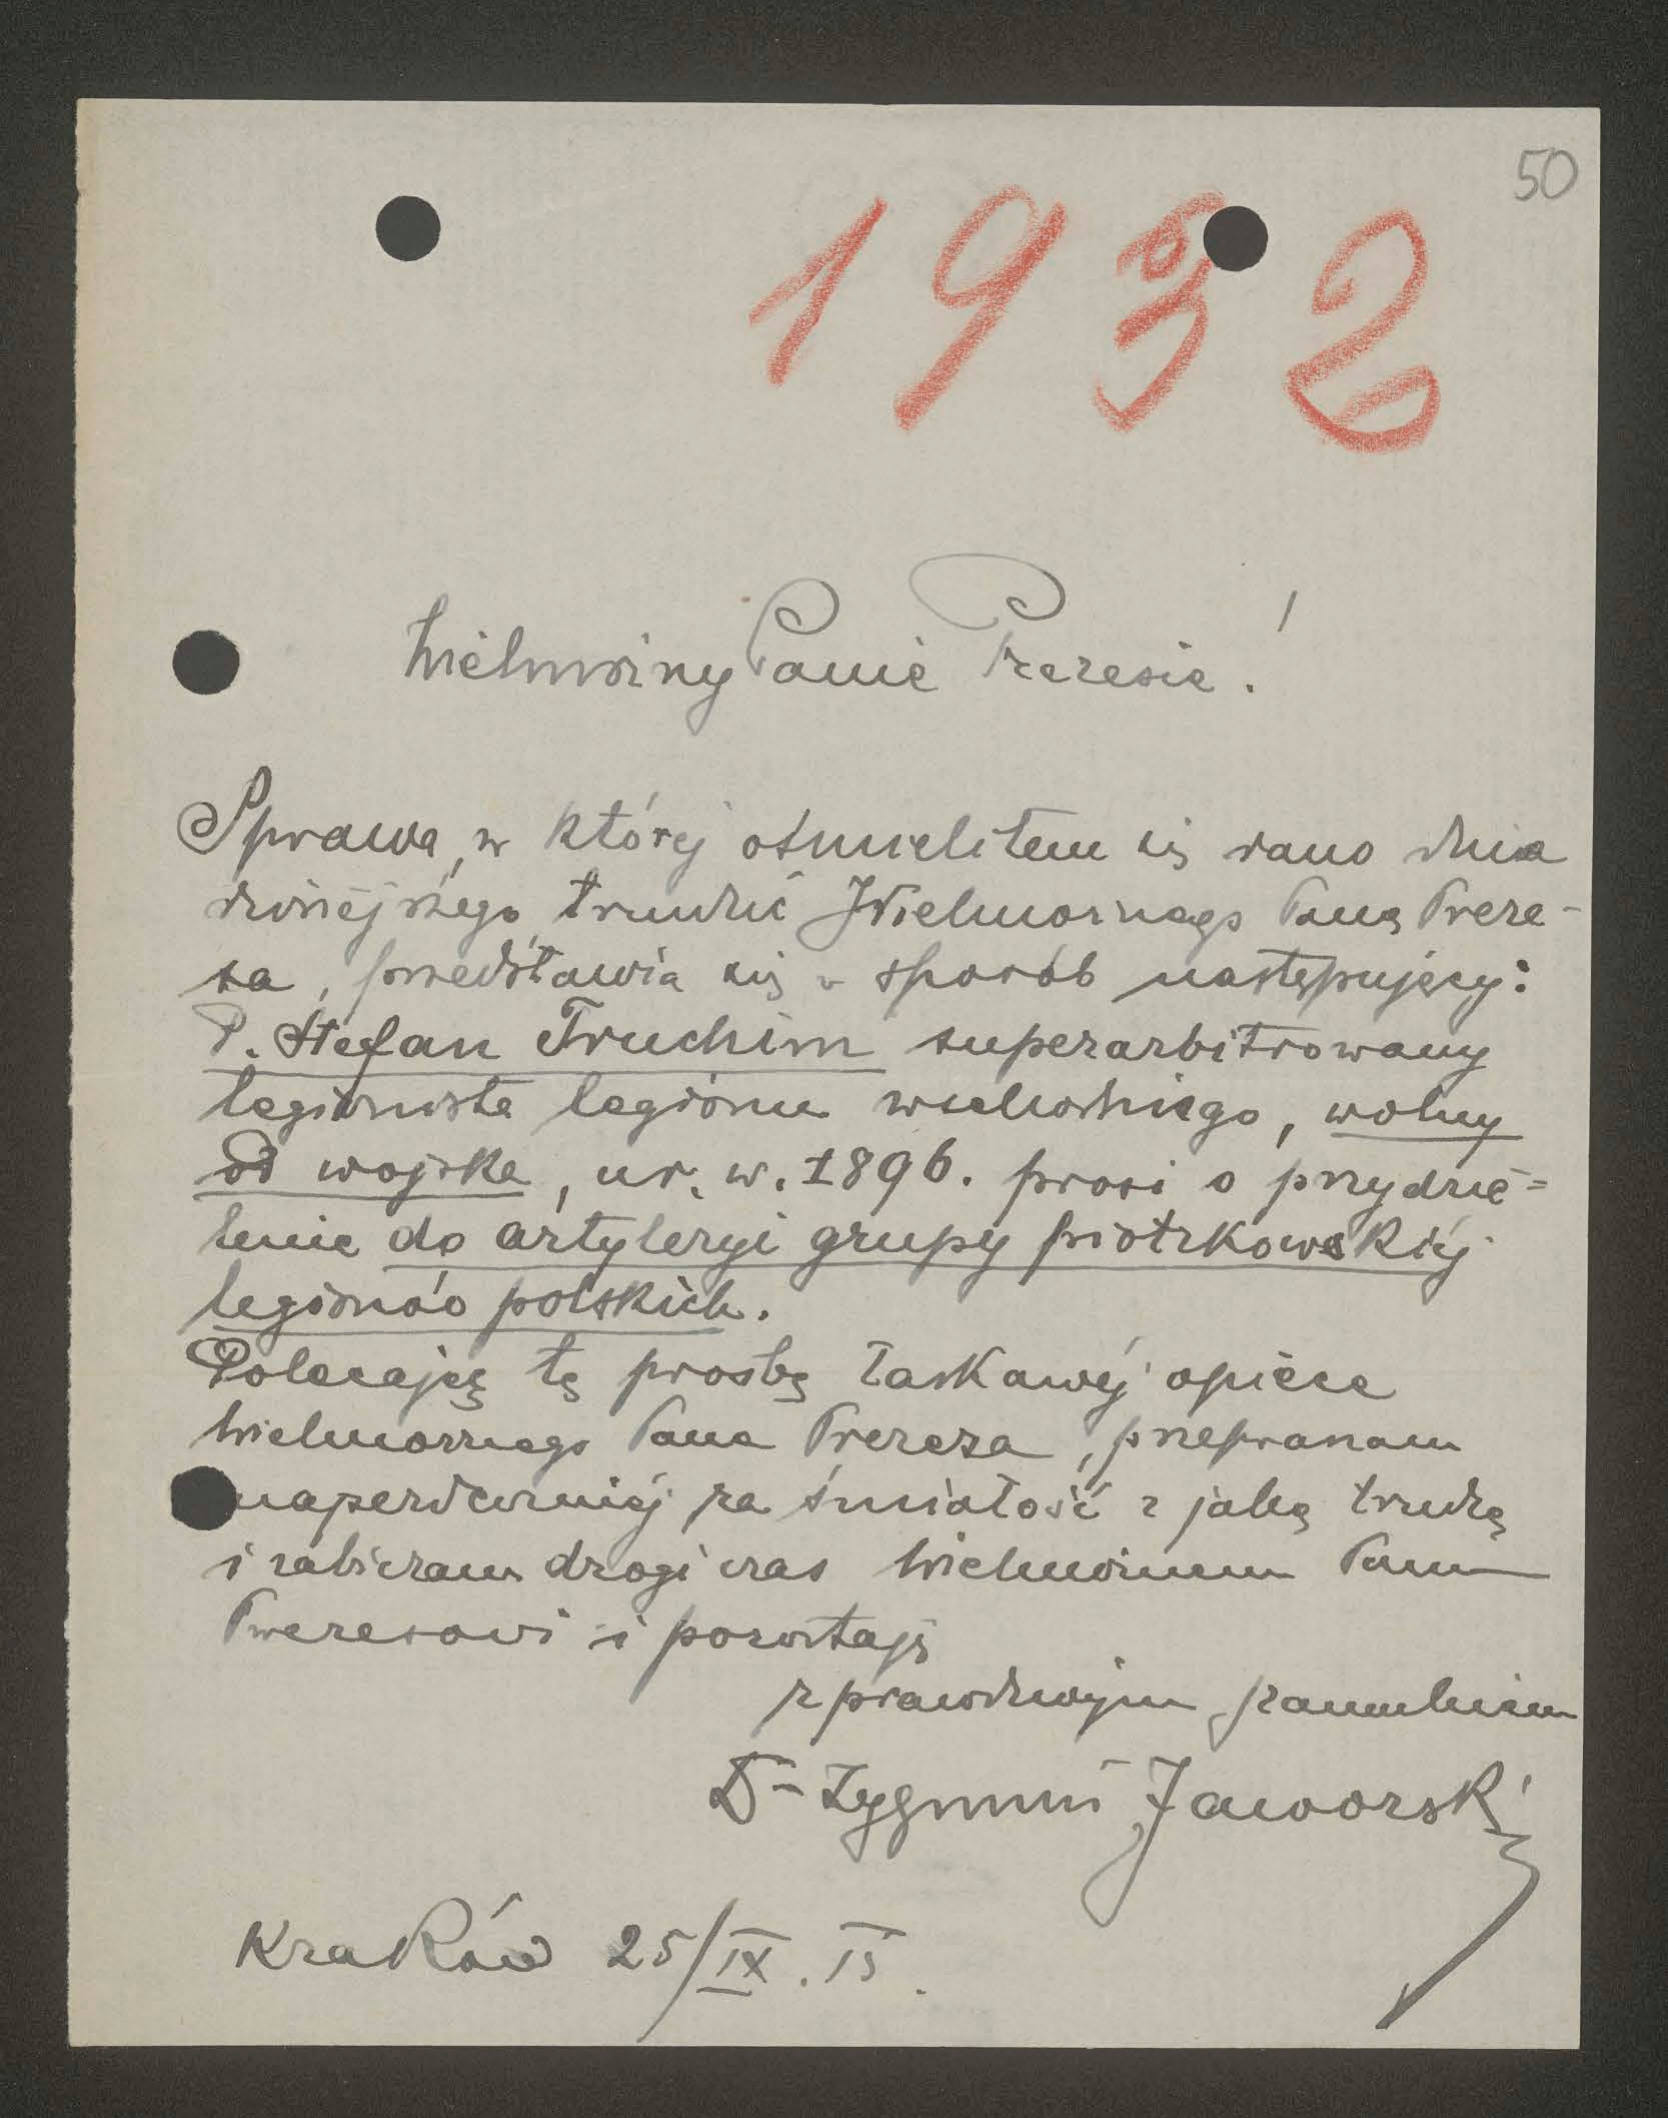 50
1932
Wielmożny Panie Prezesie!
Sprawa, w której ośmieliłem się rano dnia
dzisiejszego trudzić Wielmożnego Pana Preze-
sa, przedstawia się w sposób następujący:
P. Stefan Truchim superarbitrowany
legionista legionu wschodniego, wolny
od wojska, ur. w. 1896. prosi o przydzie=
lenie do artyleryi grupy piotrkowskiej
legionów polskich.
Polecając tę prośbę łaskawej opiece
Wielmożnego Pana Prezesa, przepraszam
najserdeczniej za śmiałość z jaką trudzę
i zabieram drogi czas Wielmożnemu Panu
Prezesowi i pozostaję
z prawdziwym szacunkiem
Dr Zygmunt Jaworski
Kraków 25/IX. 15.